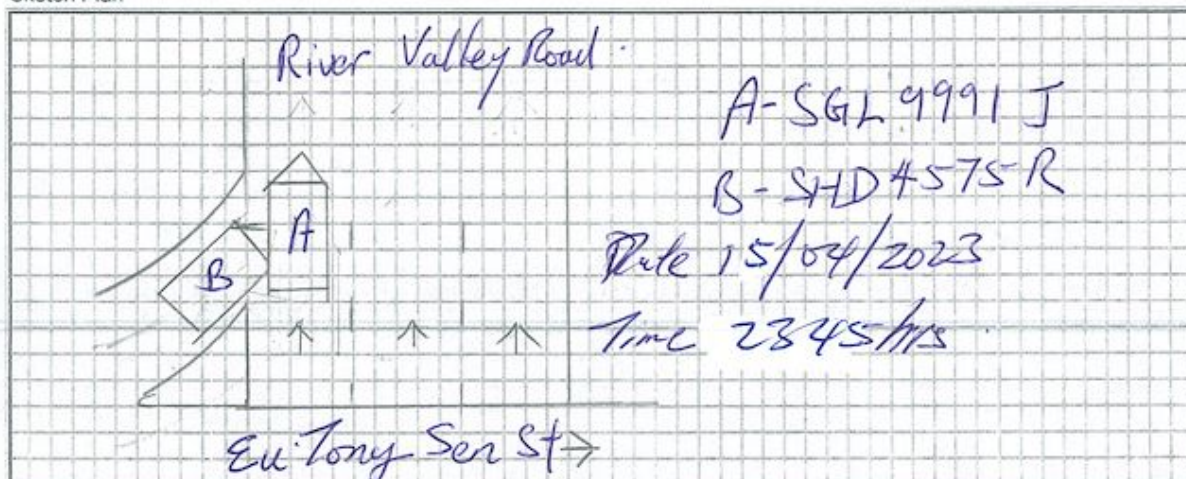 River Valley Road
A - SGL 9991 J
B - SHD 4575 R
Date 15/04/2023
Time 2345 hrs
A
B
Eu Tony Sen St →